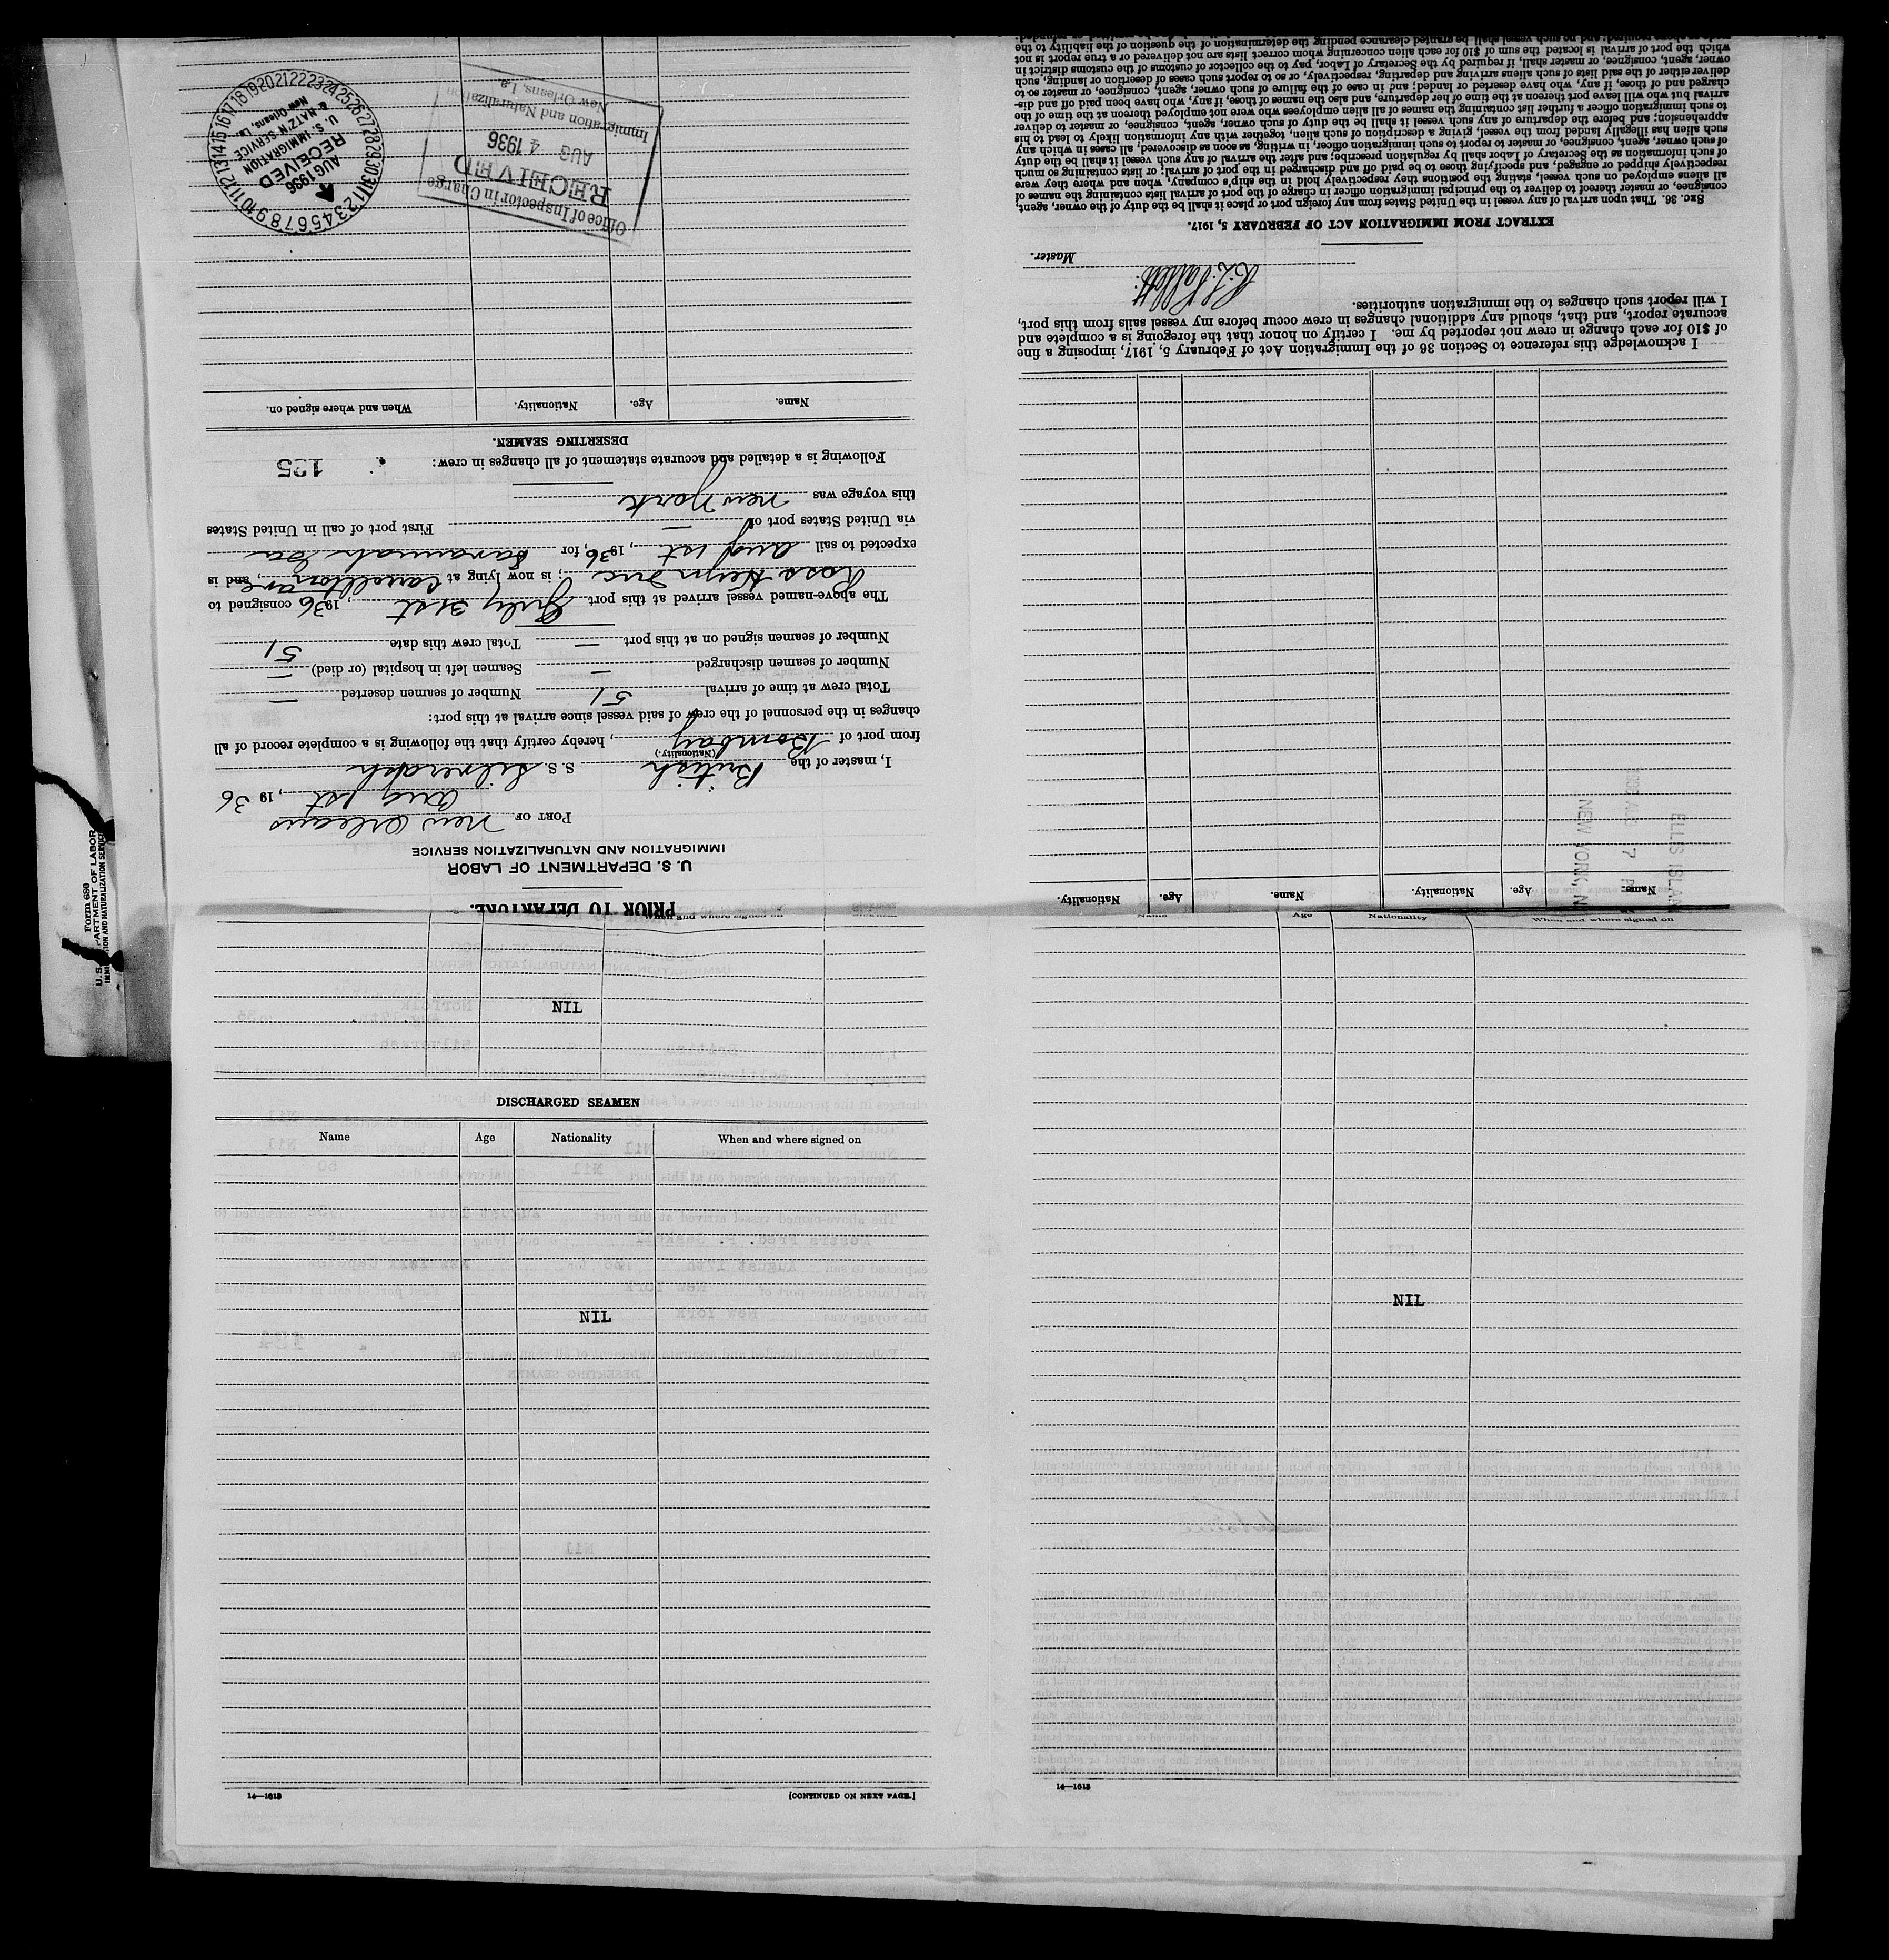 PRIOR TO DEPARTURE.
U. S. DEPARTMENT OF LABOR
IMMIGRATION AND NATURALIZATION SERVICE
PORT OF New Orleans
Aug 1st, 1936
I, master of the British S. S. Silverash
(Nationality.)
from port of Bombay, hereby certify that the following is a complete record of all
changes in the personnel of the crew of said vessel since arrival at this port:
Total crew at time of arrival 51 Number of seamen deserted —
Number of seamen discharged — Seamen left in hospital (or died) —
Number of seamen signed on at this port — Total crew this date 51
The above-named vessel arrived at this port July 31st, 1936 consigned to
Ross Heyn Inc; is now lying at Carrollton ave, and is
expected to sail Aug 1st, 1936, for Savannah Ga
via United States port of — First port of call in United States
this voyage was New York
Following is a detailed and accurate statement of all changes in crew:
135
DESERTING SEAMEN.
Name. Age. Nationality. When and where signed on.
Office of Inspector in Charge
RECEIVED
AUG 4 1936
Immigration and Naturalization
New Orleans, La.
RECEIVED
AUG 1936
U. S. IMMIGRATION
& NATZ'N SERVICE
New Orleans, La.
1 2 3 4 5 6 7 8 9 10 11 12 13 14 15 16 17 18 19 20 21 22 23 24 25 26 27 28 29 30 31
Name. Age. Nationality. Name. Age. Nationality.
ELLIS ISLAN
7
NEW YORK, N
I acknowledge this reference to Section 36 of the Immigration Act of February 5, 1917, imposing a fine
of $10 for each change in crew not reported by me. I certify on honor that the foregoing is a complete and
accurate report, and that, should any additional changes in crew occur before my vessel sails from this port,
I will report such changes to the immigration authorities.
Master.
EXTRACT FROM IMMIGRATION ACT OF FEBRUARY 5, 1917.
SEC. 36. That upon arrival of any vessel in the United States from any foreign port or place it shall be the duty of the owner, agent,
consignee, or master thereof to deliver to the principal immigration officer in charge of the port of arrival lists containing the names of
all aliens employed on such vessel, stating the positions they respectively hold in the ship's company, when and where they were
respectively shipped or engaged, and specifying those to be paid off and discharged in the port of arrival; or lists containing so much
of such information as the Secretary of Labor shall by regulation prescribe; and after the arrival of any such vessel it shall be the duty
of such owner, agent, consignee, or master to report to such immigration officer, in writing, as soon as discovered, all cases in which any
such alien has illegally landed from the vessel, giving a description of such alien, together with any information likely to lead to his
apprehension; and before the departure of any such vessel it shall be the duty of such owner, agent, consignee, or master to deliver
to such immigration officer a further list containing the names of all alien employees who were not employed thereon at the time of the
arrival but who will leave port thereon at the time of her departure, and also the names of those, if any, who have been paid off and dis-
charged and of those, if any, who have deserted or landed; and in case of the failure of such owner, agent, consignee, or master so to
deliver either of the said lists of such aliens arriving and departing, respectively, or so to report such cases of desertion or landing, such
owner, agent, consignee, or master shall, if required by the Secretary of Labor, pay to the collector of customs of the customs district in
which the port of arrival is located the sum of $10 for each alien concerning whom correct lists are not delivered or a true report is not
made as above required; and no such vessel shall be granted clearance pending the determination of the question of the liability to the
Form 680
U. S. DEPARTMENT OF LABOR
IMMIGRATION AND NATURALIZATION SERVICE
and where signed on
NIL
DISCHARGED SEAMEN
Name Age Nationality When and where signed on
NIL
14—1613 [CONTINUED ON NEXT PAGE.]
Name Age Nationality When and where signed on
NIL
14—1613